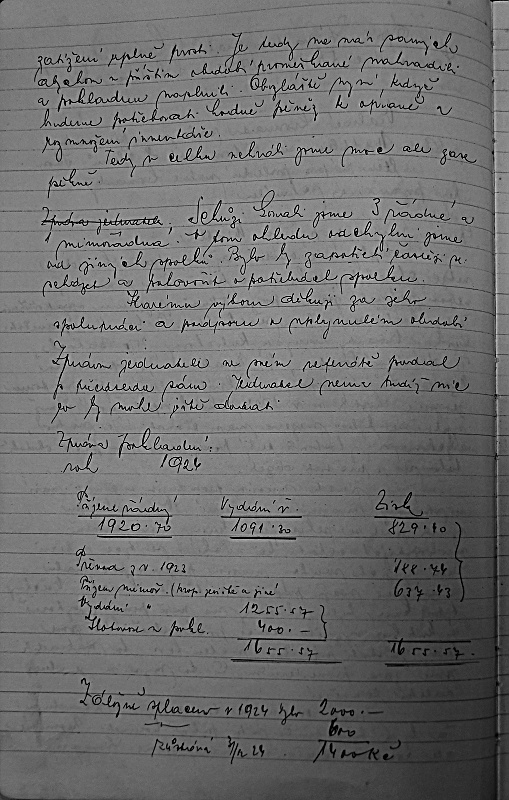 zatížení úplně prosti. Je tedy na nás samých
abychom v příštím období promeškané nahradili
a pokladnu naplnili. Obzvláště nyní, kdyže
budeme potřebovati hodně peněz k opravě a
rozmnožení inventáře.
Tedy v celku nehráli jsme moc ale zase
pěkně.
Zpráva jednatele. Schůzí konali jsme 3 řádné a
1 mimořádná. V tom ohledu odchýlni jsme
od jiných spolků. Bylo by zapotřebí častěji se
scházet a pohovořit o potřebách spolku.
Starému výboru děkuji za jeho
spolupráci a podporu v uplynulém období
Zprávu jednatele ve svém referátě podal
p. předseda sám. Jednatel nemá tudíž nic
co by mohl ještě dodati.
Zpráva pokladní:
rok 1924
Příjem řádný Vydání ř. Zisk
1920.70 1091.30 829.40
Převod z r. 1923 188.74
Příjem mimoř. (kup. jeviště a jiné 637.43
Vydání " 1255.57
Hotovost v pokl. 400.—
1655.57 1655.57.
Záležně splaceno v 1924 bylo 2000.—
600
Zůstává 24 1400 Kč